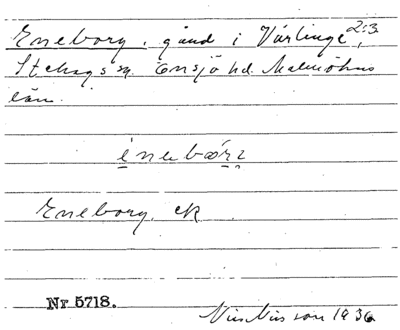 Eneborg, gård i Vårlinge 2:3,
Stehags sn. Onsjö hd. Malmöhus
län.
Eneborg. ek
Nr 5718.
Nils Nilsson 1936